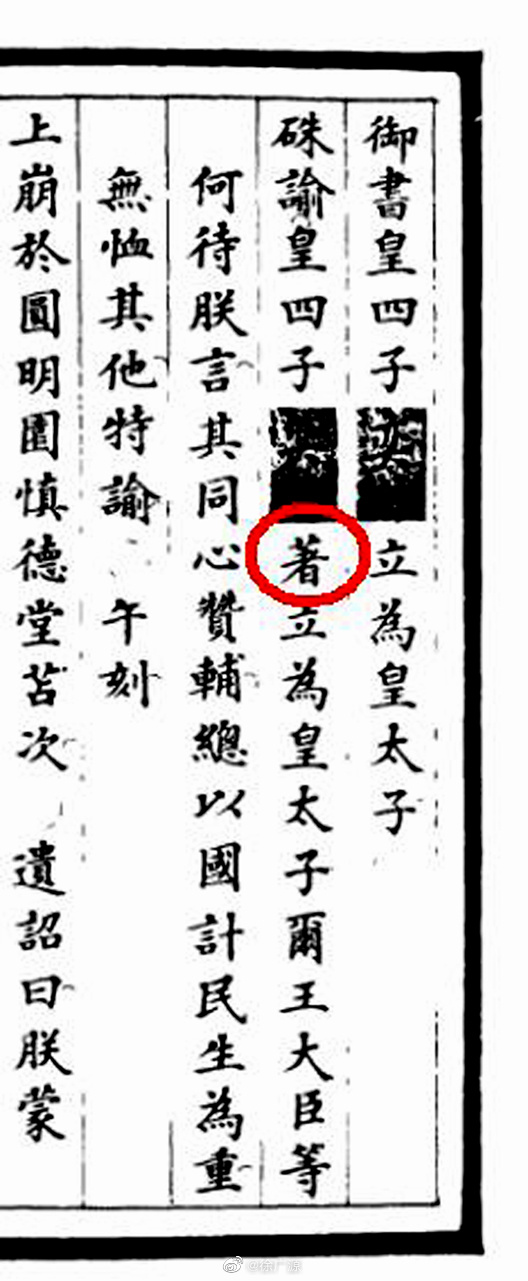 御書皇四子立為皇太子
硃諭皇四子著立為皇太子爾王大臣等
何待朕言其同心贊輔總以國計民生為重
無恤其他特諭 午刻
上崩於圓明園慎德堂苫次 遺詔曰朕蒙